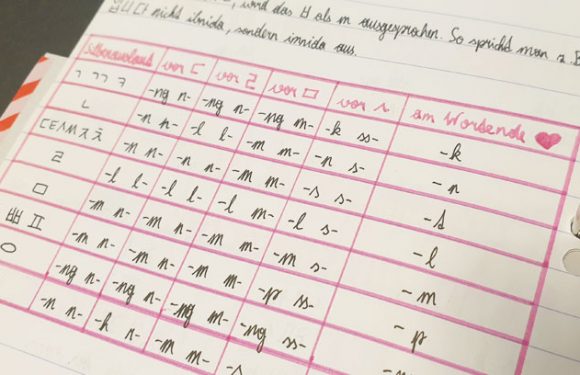 , wird das ㅂ als m ausgesprochen. So spricht man z.B.
입니다 nicht ibnida, sondern imnida aus.
Silbenauslaut vor ㄷ vor ㄹ vor ㅁ vor ㅅ am Wortende
ㄱ ㄲ ㅋ -ng n- -ng n- -ng m- -k ss- -k
ㄴ -n n- -l l- -m m- -n s- -n
ㄷㅌㅅㅆㅈㅊ -n n- -n n- -m m- -s s- -d
ㄹ -l l- -l l- -l m- -l s- -l
ㅁ -m n- -m n- -m m- -m s- -m
ㅃ ㅍ -m n- -m n- -m m- -p ss- -p
ㅇ -ng n- -ng n- -ng m- -ng ss-
-n n- -h n- -m m- -s